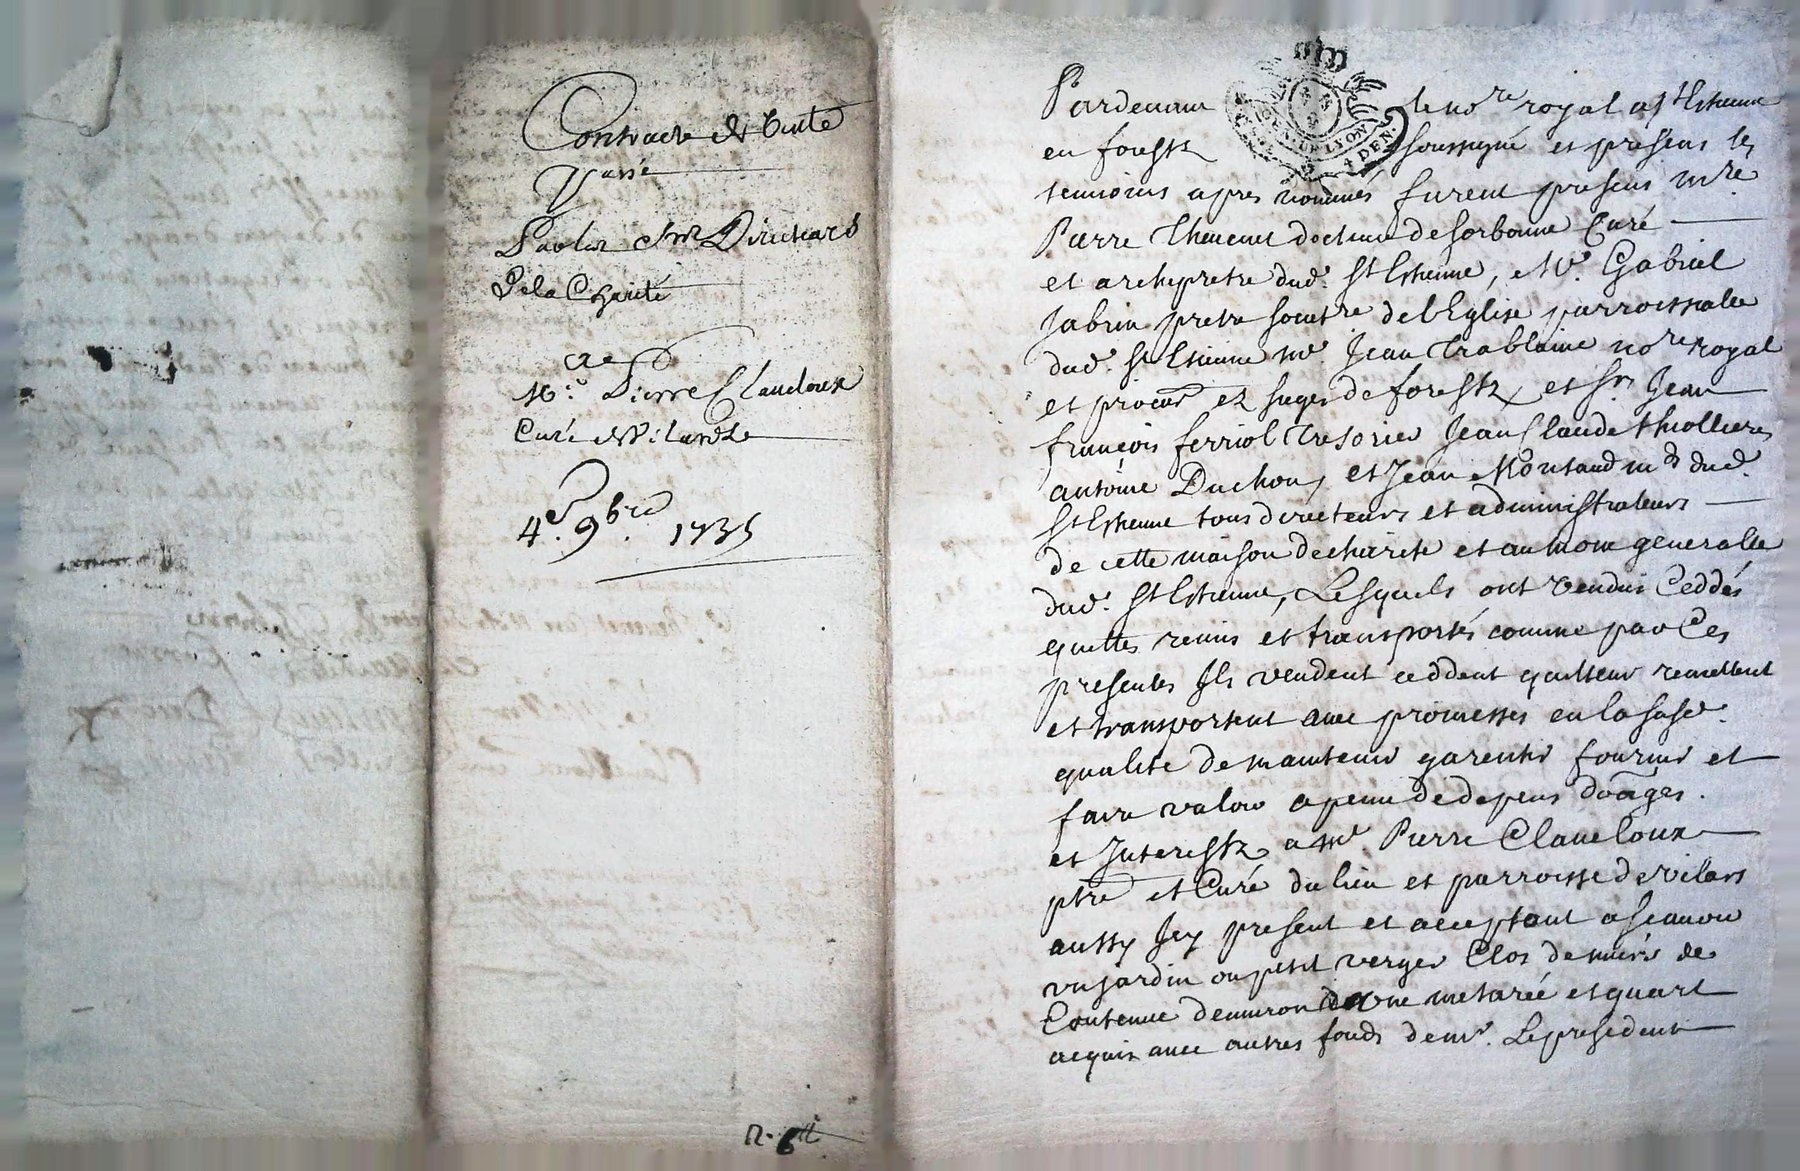 Contract de Vente
Passé
Par les srs Directeurs
De la Charité
a
Mre. Pierre Claueloux
Curé de Vilards
4e. 9bre. 1735
n. 6
GEN. DE LYON
4 DEN.
Pardeuant le nore royal a st Estienne
en forestz soussigné et presens les
temoins apres nommés furent presens mre
Pierre Theuenet docteur de sorbonne Curé
et archipretre dud. st Estienne, Mre. Gabriel
Jabrin pretre societre de l'Eglise parroissialle
dud. st Estienne me Jean Trablaine nore royal
et procur ez sieges de forestz, et sr Jean
françois ferriol Tresorier Jean Claude thiolliere
antoine Duchon, et Jean Montaud mds dud.
st Estienne tous directeurs et administrateurs
de cette maison de charité et aumone generalle
dud. st Estienne, Lesquels ont vendus Ceddés
quittés remis et transportés comme par Ces
presentes Ils vendent ceddent quittent remettent
et transportent auec promesses en la susd.
qualité de maintenir garentir fournir et
faire valoir a peine de depens doages.
et Interestz a Mre. Pierre Claueloux
ptre et Curé du lieu et parroisse de vilars
aussy Icy present et acceptant a scauoir
un jardin ou petit verger Clos de murs de
Contenue denuiron une metarée et quart
acquis auec autres fonds de mr. Le president